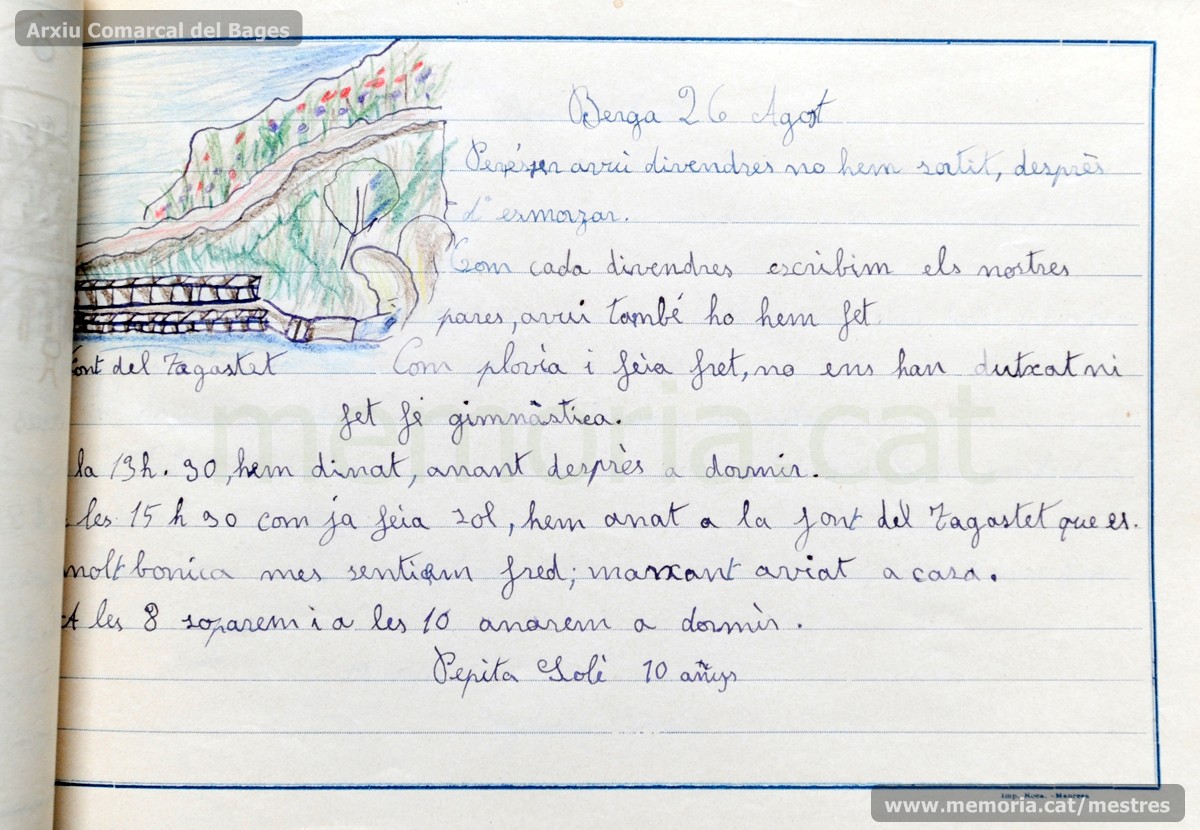 Arxiu Comarcal del Bages
Berga 26 Agost
avui divendres no hem sortit, desprès
d'esmorzar.
Com cada divendres escribim els nostres
pares, avui també ho hem fet.
font del Tagastet
Com plovia i feia fret, no ens han dutxat ni
fet fé gimnàstica.
la 13h. 30, hem dinat, anant desprès a dormir.
les 15 h 30 com ja feia sol, hem anat a la font del Tagastet que es.
molt bonica mes sentiem fred; marxant aviat a casa.
A les 8 soparem i a les 10 anarem a dormir.
Pepita Solè 10 añys
memoria.cat
Imp. Roca. - Manresa
www.memoria.cat/mestres